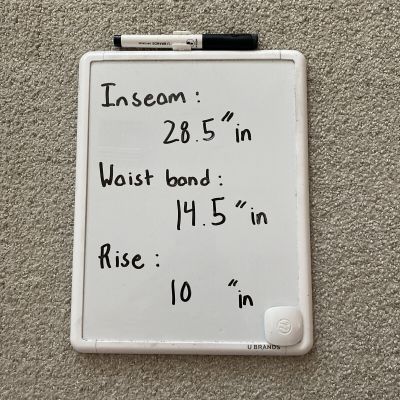 Inseam :
28.5" in
Waist band :
14.5" in
Rise :
10 "in
U BRANDS